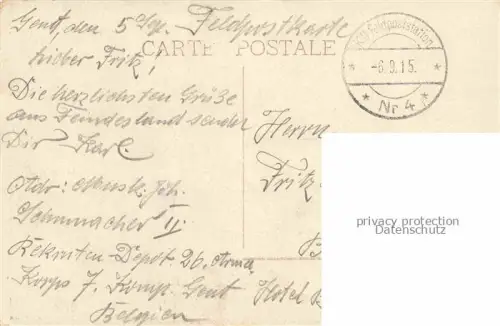 Gent, den 5 Sep. Feldpostkarte
CARTE POSTALE
Lieber Fritz!
Die herzlichsten Grüße
aus Feindesland sendet
Dir Karl.
Adr: Musk. Joh.
Schumacher II
Rekruten-Depot 26. Arme
Korps 7. Komp. Gent
Belgien
Feldpoststation
-6.9.15.
* Nr 4 *
Herrn
Fritz
Hotel
privacy protection
Datenschutz